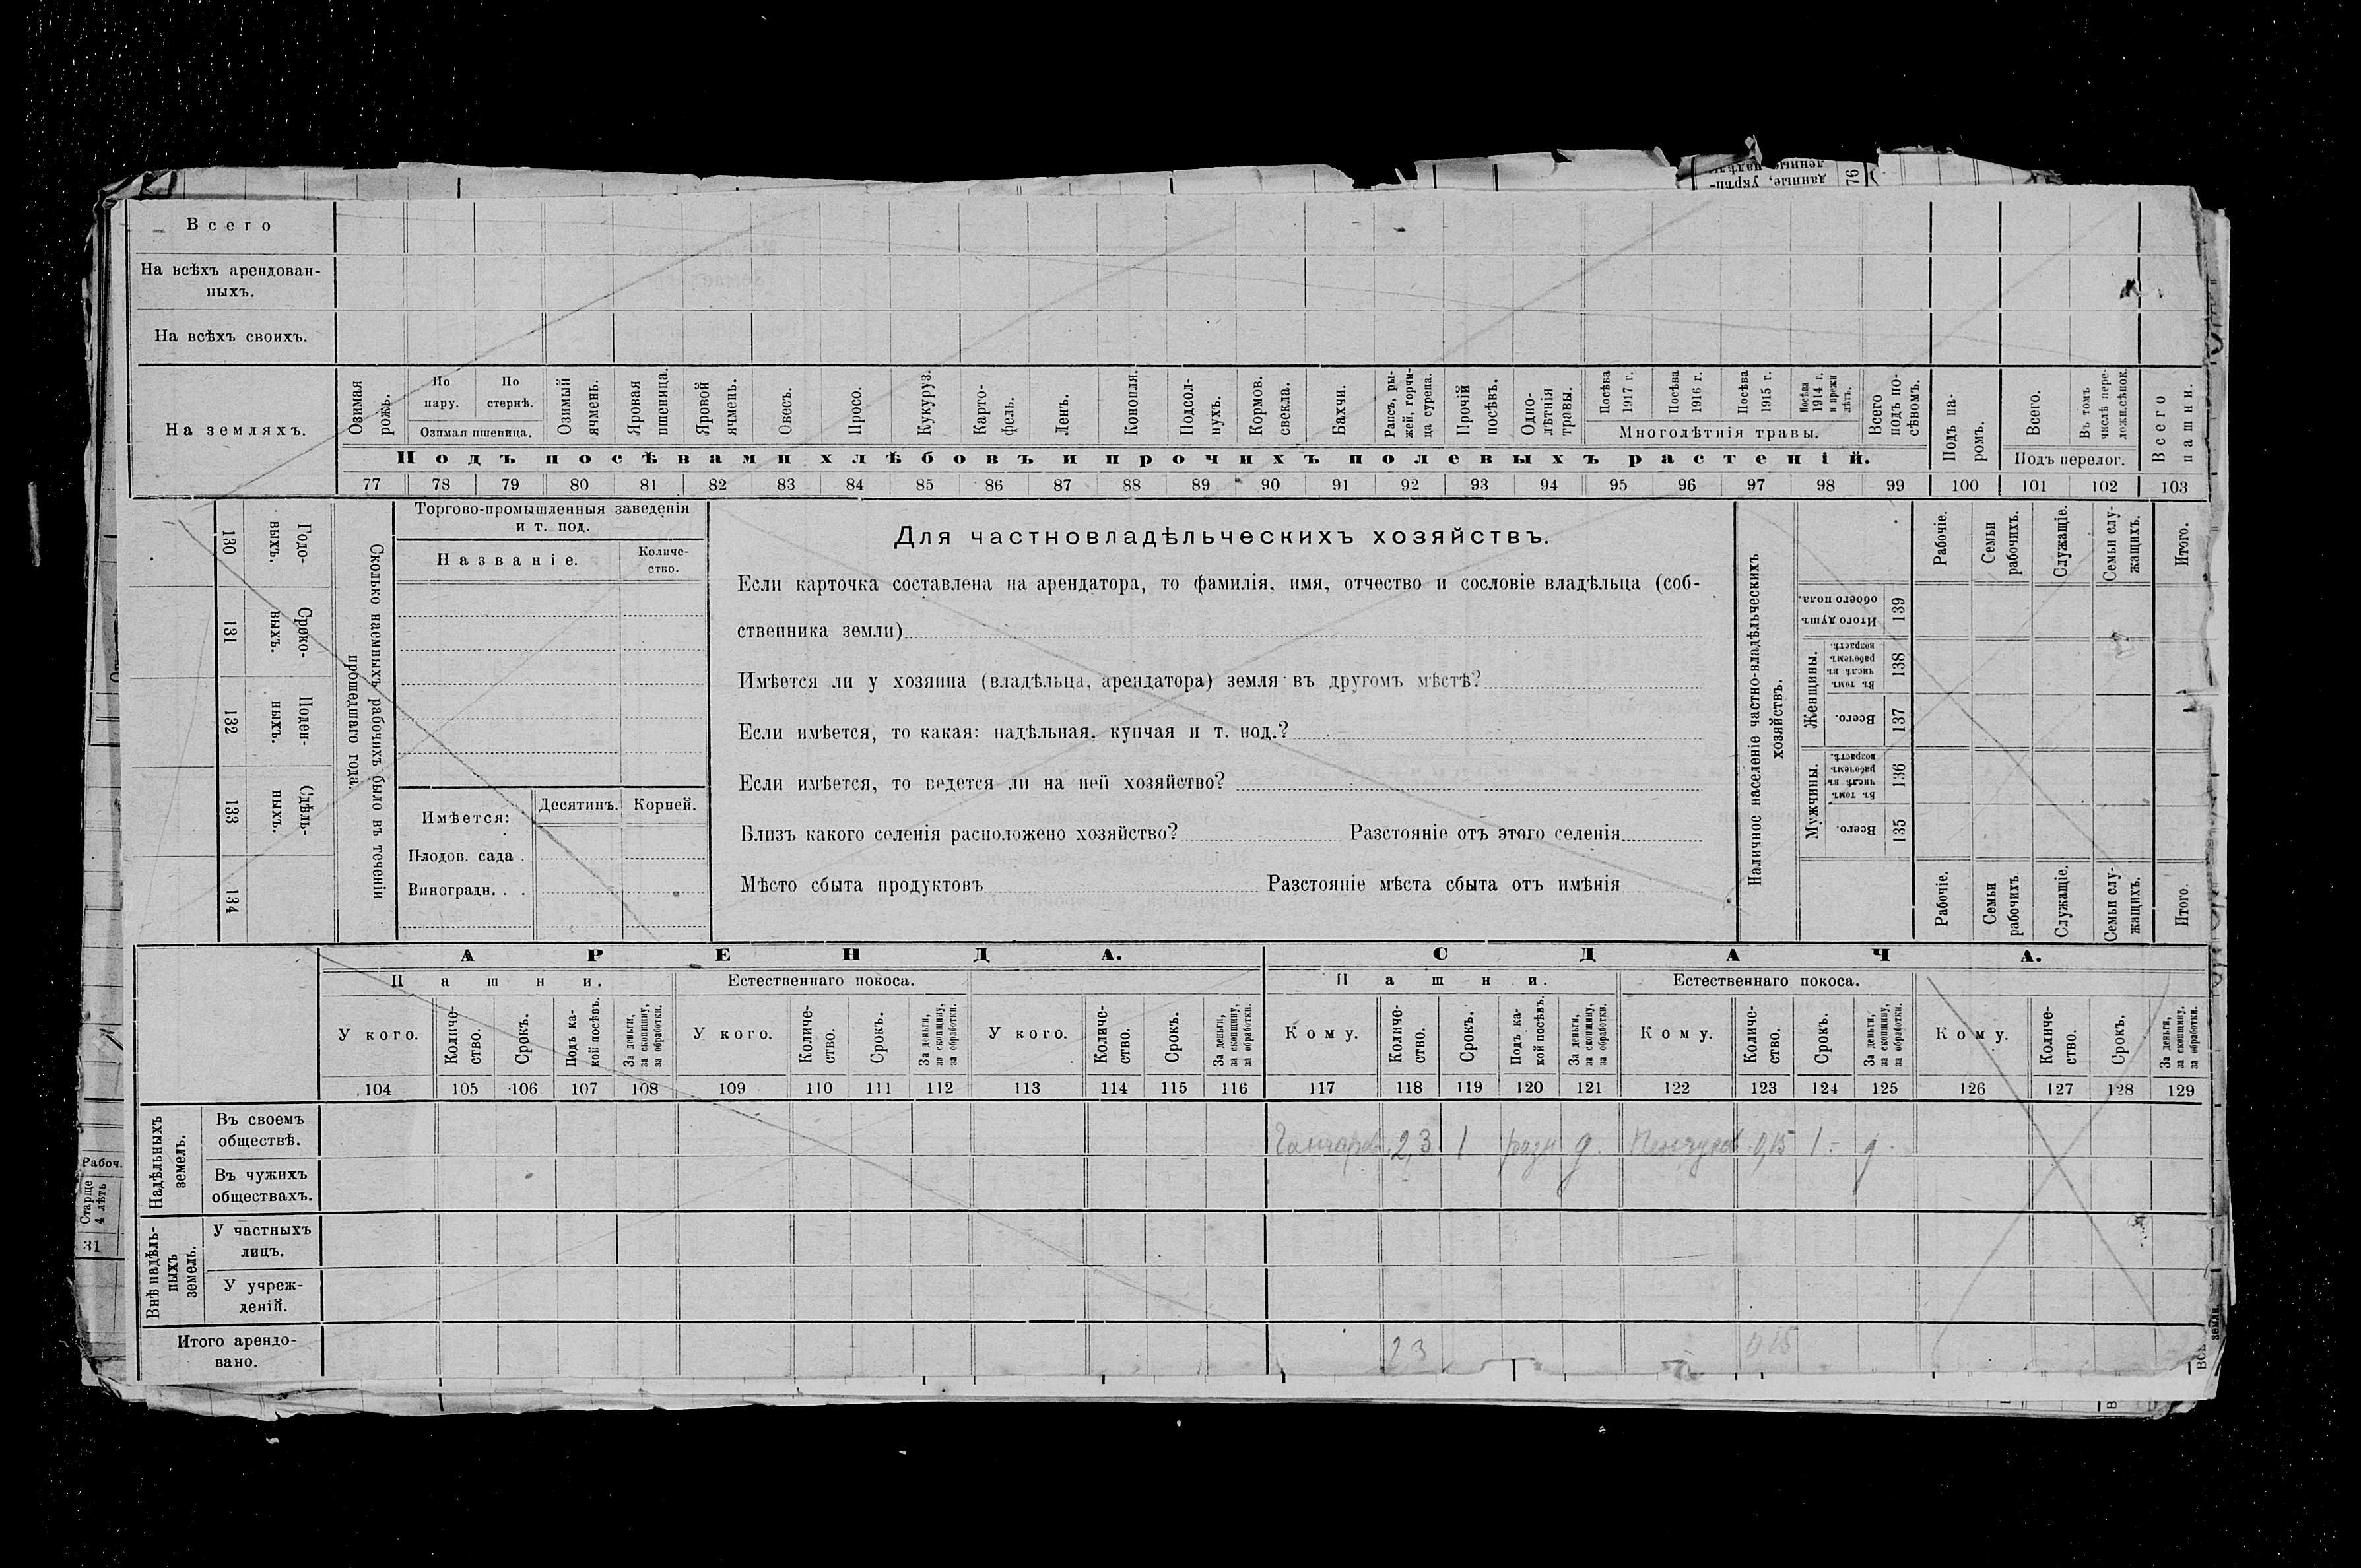 Всего
На всѣхъ арендован-
ныхъ.
На всѣхъ своихъ.
На земляхъ.
Озимая рожь.
По пару.
По стернѣ.
Озимая пшеница.
Озимый ячмень.
Яровая пшеница.
Яровой ячмень.
Овесъ.
Просо.
Кукуруз.
Карто-
фель.
Ленъ.
Конопля.
Подсол-
нухъ.
Кормов. свекла.
Бахчи.
Рапсъ, ры-
жей, горчи-
ца сурепа.
Прочій посѣвъ.
Одно-
лѣтнія травы.
Посѣва 1917 г.
Посѣва 1916 г.
Посѣва 1915 г.
Посѣва 1914 г. и прежн лѣтъ.
Многолѣтнія травы.
Всего подъ по-
сѣвомъ.
Подъ па-
ромъ.
Всего.
Въ томъ числѣ пере-
ложн.сѣнок.
Подъ перелог.
Всего пашни.
Подъ посѣвами хлѣбовъ и прочихъ полевыхъ растеній.
77 78 79 80 81 82 83 84 85 86 87 88 89 90 91 92 93 94 95 96 97 98 99 100 101 102 103
130 Годо-
выхъ.
131 Сроко-
выхъ.
132 Поден-
ныхъ.
133 Сдѣль-
ныхъ.
134
Сколько наемныхъ рабочихъ было въ теченіи
прошедшаго года.
Торгово-промышленныя заведенія
и т. под.
Названіе.
Количе-
ство.
Имѣется:
Десятинъ.
Корней.
Плодов. сада .
Виноградн. . .
Для частновладѣльческихъ хозяйствъ.
Если карточка составлена на арендатора, то фамилія, имя, отчество и сословіе владѣльца (соб-
ственника земли)
Имѣется ли у хозяина (владѣльца, арендатора) земля въ другомъ мѣстѣ?
Если имѣется, то какая: надѣльная, купчая и т. под.?
Если имѣется, то ведется ли на ней хозяйство?
Близъ какого селенія расположено хозяйство? Разстояніе отъ этого селенія
Мѣсто сбыта продуктовъ Разстояніе мѣста сбыта отъ имѣнія
Наличное населеніе частно-владѣльческихъ
хозяйствъ.
Рабочіе.
Семьи рабочихъ.
Служащіе.
Семьи слу-
жащихъ.
Итого.
Итого душъ обоего пола. 139
Женщины.
Въ томъ числѣ въ рабочемъ возрастѣ. 138
Всего. 137
Мужчины.
Въ томъ числѣ въ рабочемъ возрастѣ. 136
Всего. 135
Рабочіе.
Семьи рабочихъ
Служащіе.
Семьи слу-
жащихъ.
Итого.
АРЕНДА. СДАЧА.
Пашни. Естественнаго покоса. Пашни. Естественнаго покоса.
У кого. Количе-
ство. Срокъ. Подъ ка-
кой посѣвъ. За деньги, за скопщину, за обработки.
У кого. Количе-
ство. Срокъ. За деньги, за скопщину, за обработки.
У кого. Количе-
ство. Срокъ. За деньги, за скопщину, за обработки.
Кому. Количе-
ство. Срокъ. Подъ ка-
кой посѣвъ. За деньги, за скопщину, за обработки.
Кому. Количе-
ство. Срокъ. За деньги, за скопщину, за обработки.
Кому. Количе-
ство. Срокъ. За деньги, за скопщину, за обработки.
104 105 106 107 108 109 110 111 112 113 114 115 116 117 118 119 120 121 122 123 124 125 126 127 128 129
Надѣльныхъ
земель.
Въ своемъ
обществѣ.
2,3 1 д. 0,15 1 д
Въ чужихъ
обществахъ.
Внѣ надѣль-
ныхъ
земель.
У частныхъ
лицъ.
У учреж-
деній.
Итого арендо-
вано.
2 3 0 15
Рабоч.
Старще
4 лѣтъ
31
76